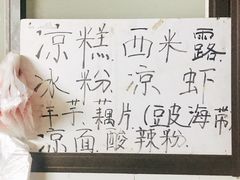 凉糕 西米露
冰粉 凉虾
洋芋.藕片(豆皮海带
凉面.酸辣粉